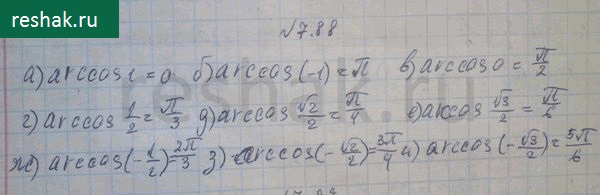 reshak.ru
√7.88
а) arccos 1 = 0 б) arccos(-1) = π в) arccos 0 = π/2
г) arccos 1/2 = π/3 д) arccos √2/2 = π/4 е) arccos √3/2 = π/6
ж) arccos(-1/2) = 2π/3 з) arccos(-√2/2) = 3π/4 и) arccos(-√3/2) = 5π/6